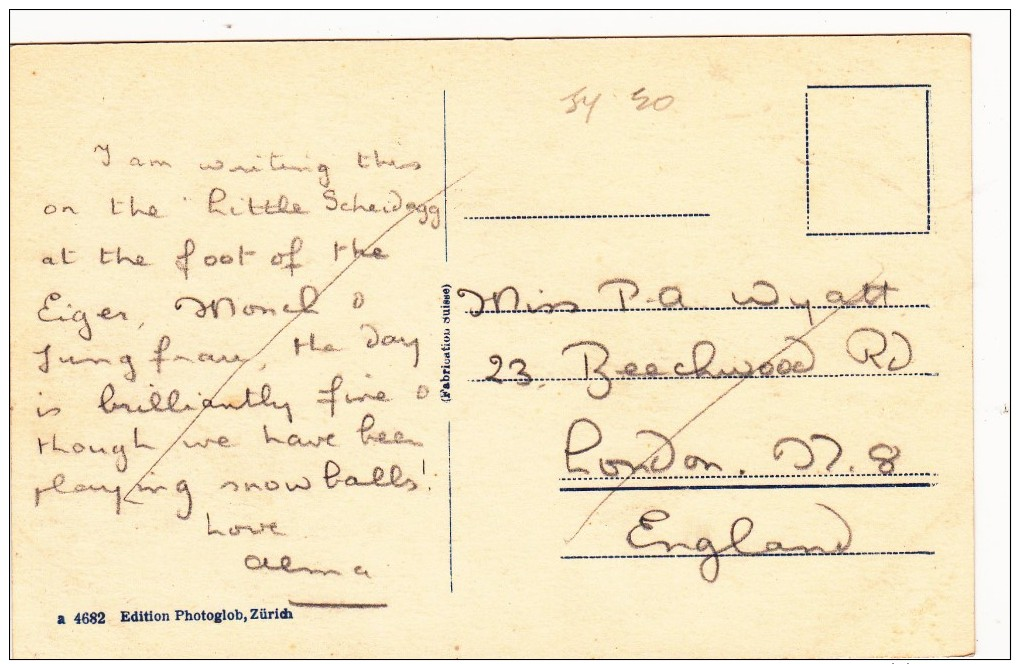 I am writing this
on the Little Scheidegg
at the foot of the
Eiger, Monch &
Jungfrau, the day
is brilliantly fine &
though we have been
playing snowballs!
Love
Alma
a 4682 Edition Photoglob, Zürich
(Fabrication Suisse)
Miss P.A. Wyatt
23, Beechwood Rd
London. N. 8
England